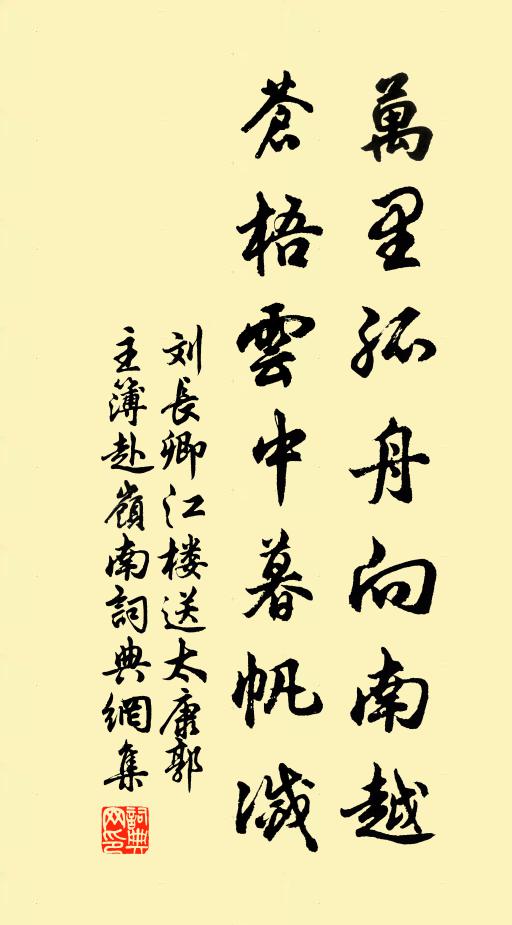 萬里孤舟向南越
蒼梧雲中暮帆滅
刘長卿江楼送太康郭
主簿赴嶺南詞典網集
詞典
网印